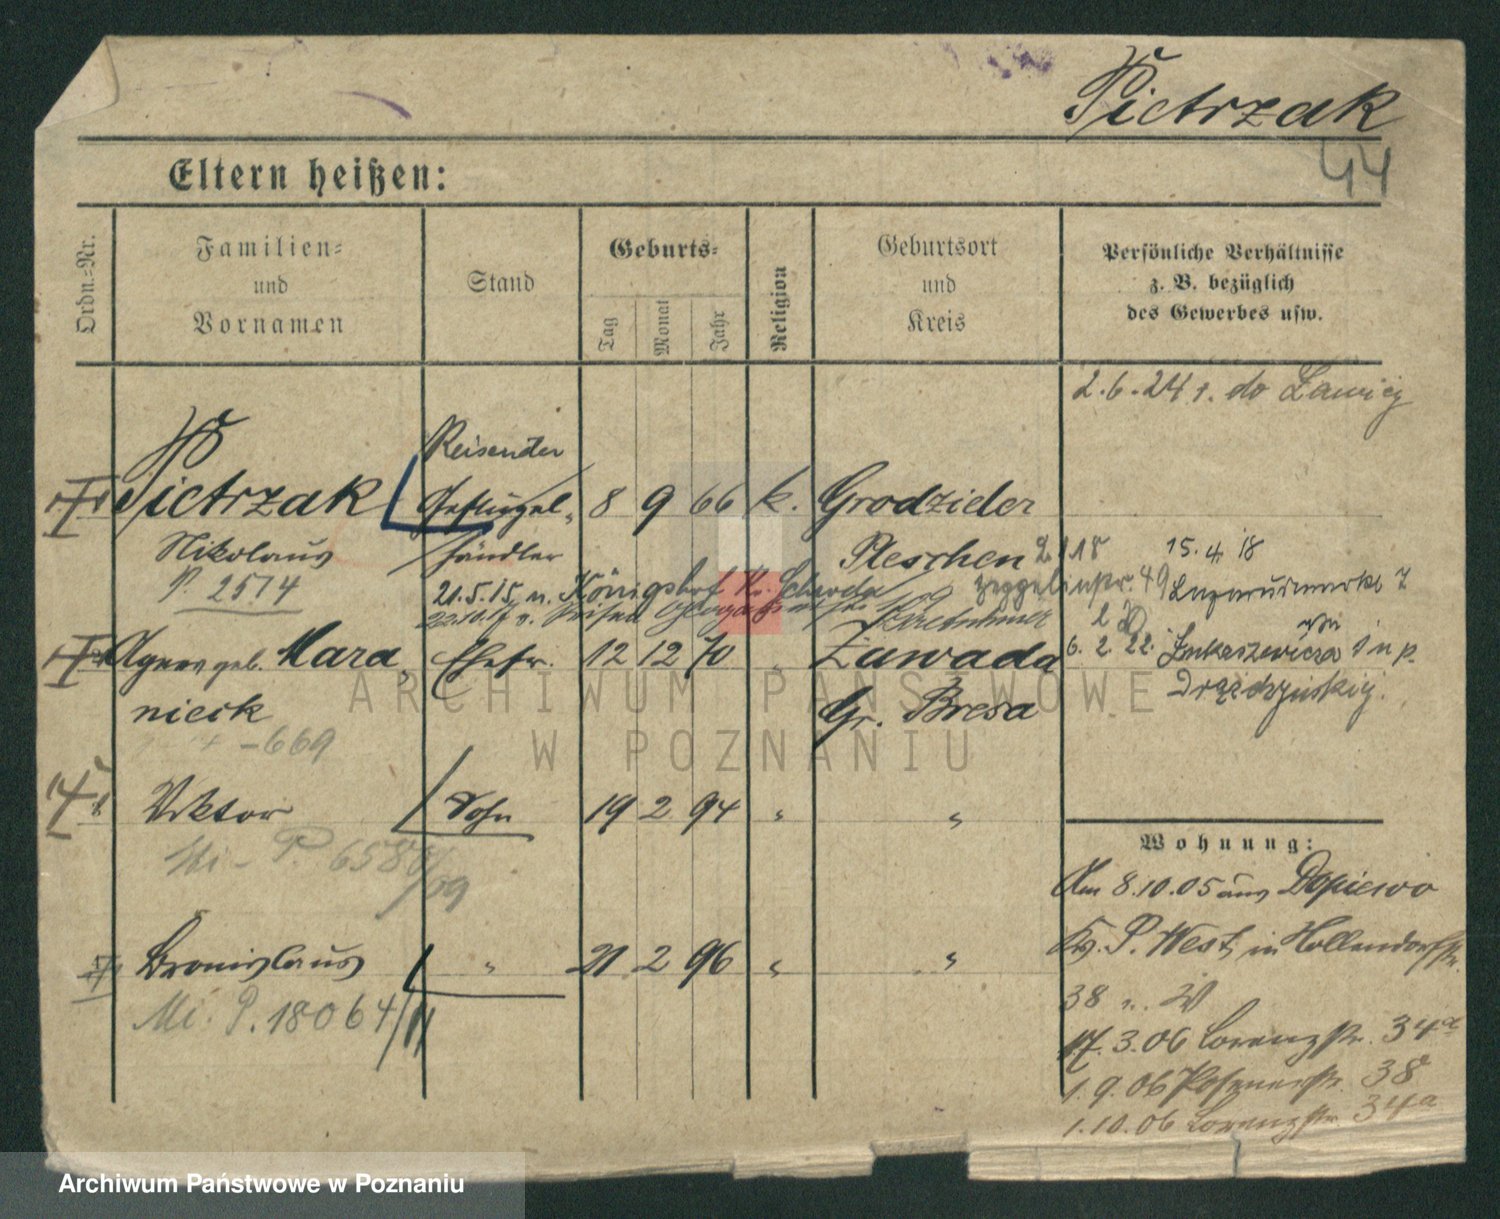 Pietrzak
44
Eltern heißen:
Ordn.=Nr.
Familien=
und
Vornamen
Stand
Geburts=
Tag
Monat
Jahr
Religion
Geburtsort
und
Kreis
Persönliche Verhältnisse
z. B. bezüglich
des Gewerbes usw.
2.6.24 r. do Ławicy
Reisender
Pietrzak Geflügel- 8 9 66 k. Grodzisko
Nikolaus händler Pleschen 2 18 15.4.18
P. 2574 21.5.15 n. Königshof Kr. Zeppelinstr. 49 Lazarusmarkt 7
Agnes geb. Mara- Ehefr. 12 12 70 " Zawada 6.2.22. Łukaszewicza
nieck Gr. Bresa
-669
Viktor Sohn 19 2 94 " "
Mi- P. 6588/09
Wohnung:
Am 8.10.05 aus Dopiewo
Bronislaus " 21 2 96 " " Kr. P. West, in Hollendorfstr.
Mi. P. 18064/11 38
17.3.06 Lorenzstr. 34a
1.9.06 Posenerstr. 38
1.10.06 Lorenzstr. 34a
ARCHIWUM PAŃSTWOWE
W POZNANIU
Archiwum Państwowe w Poznaniu